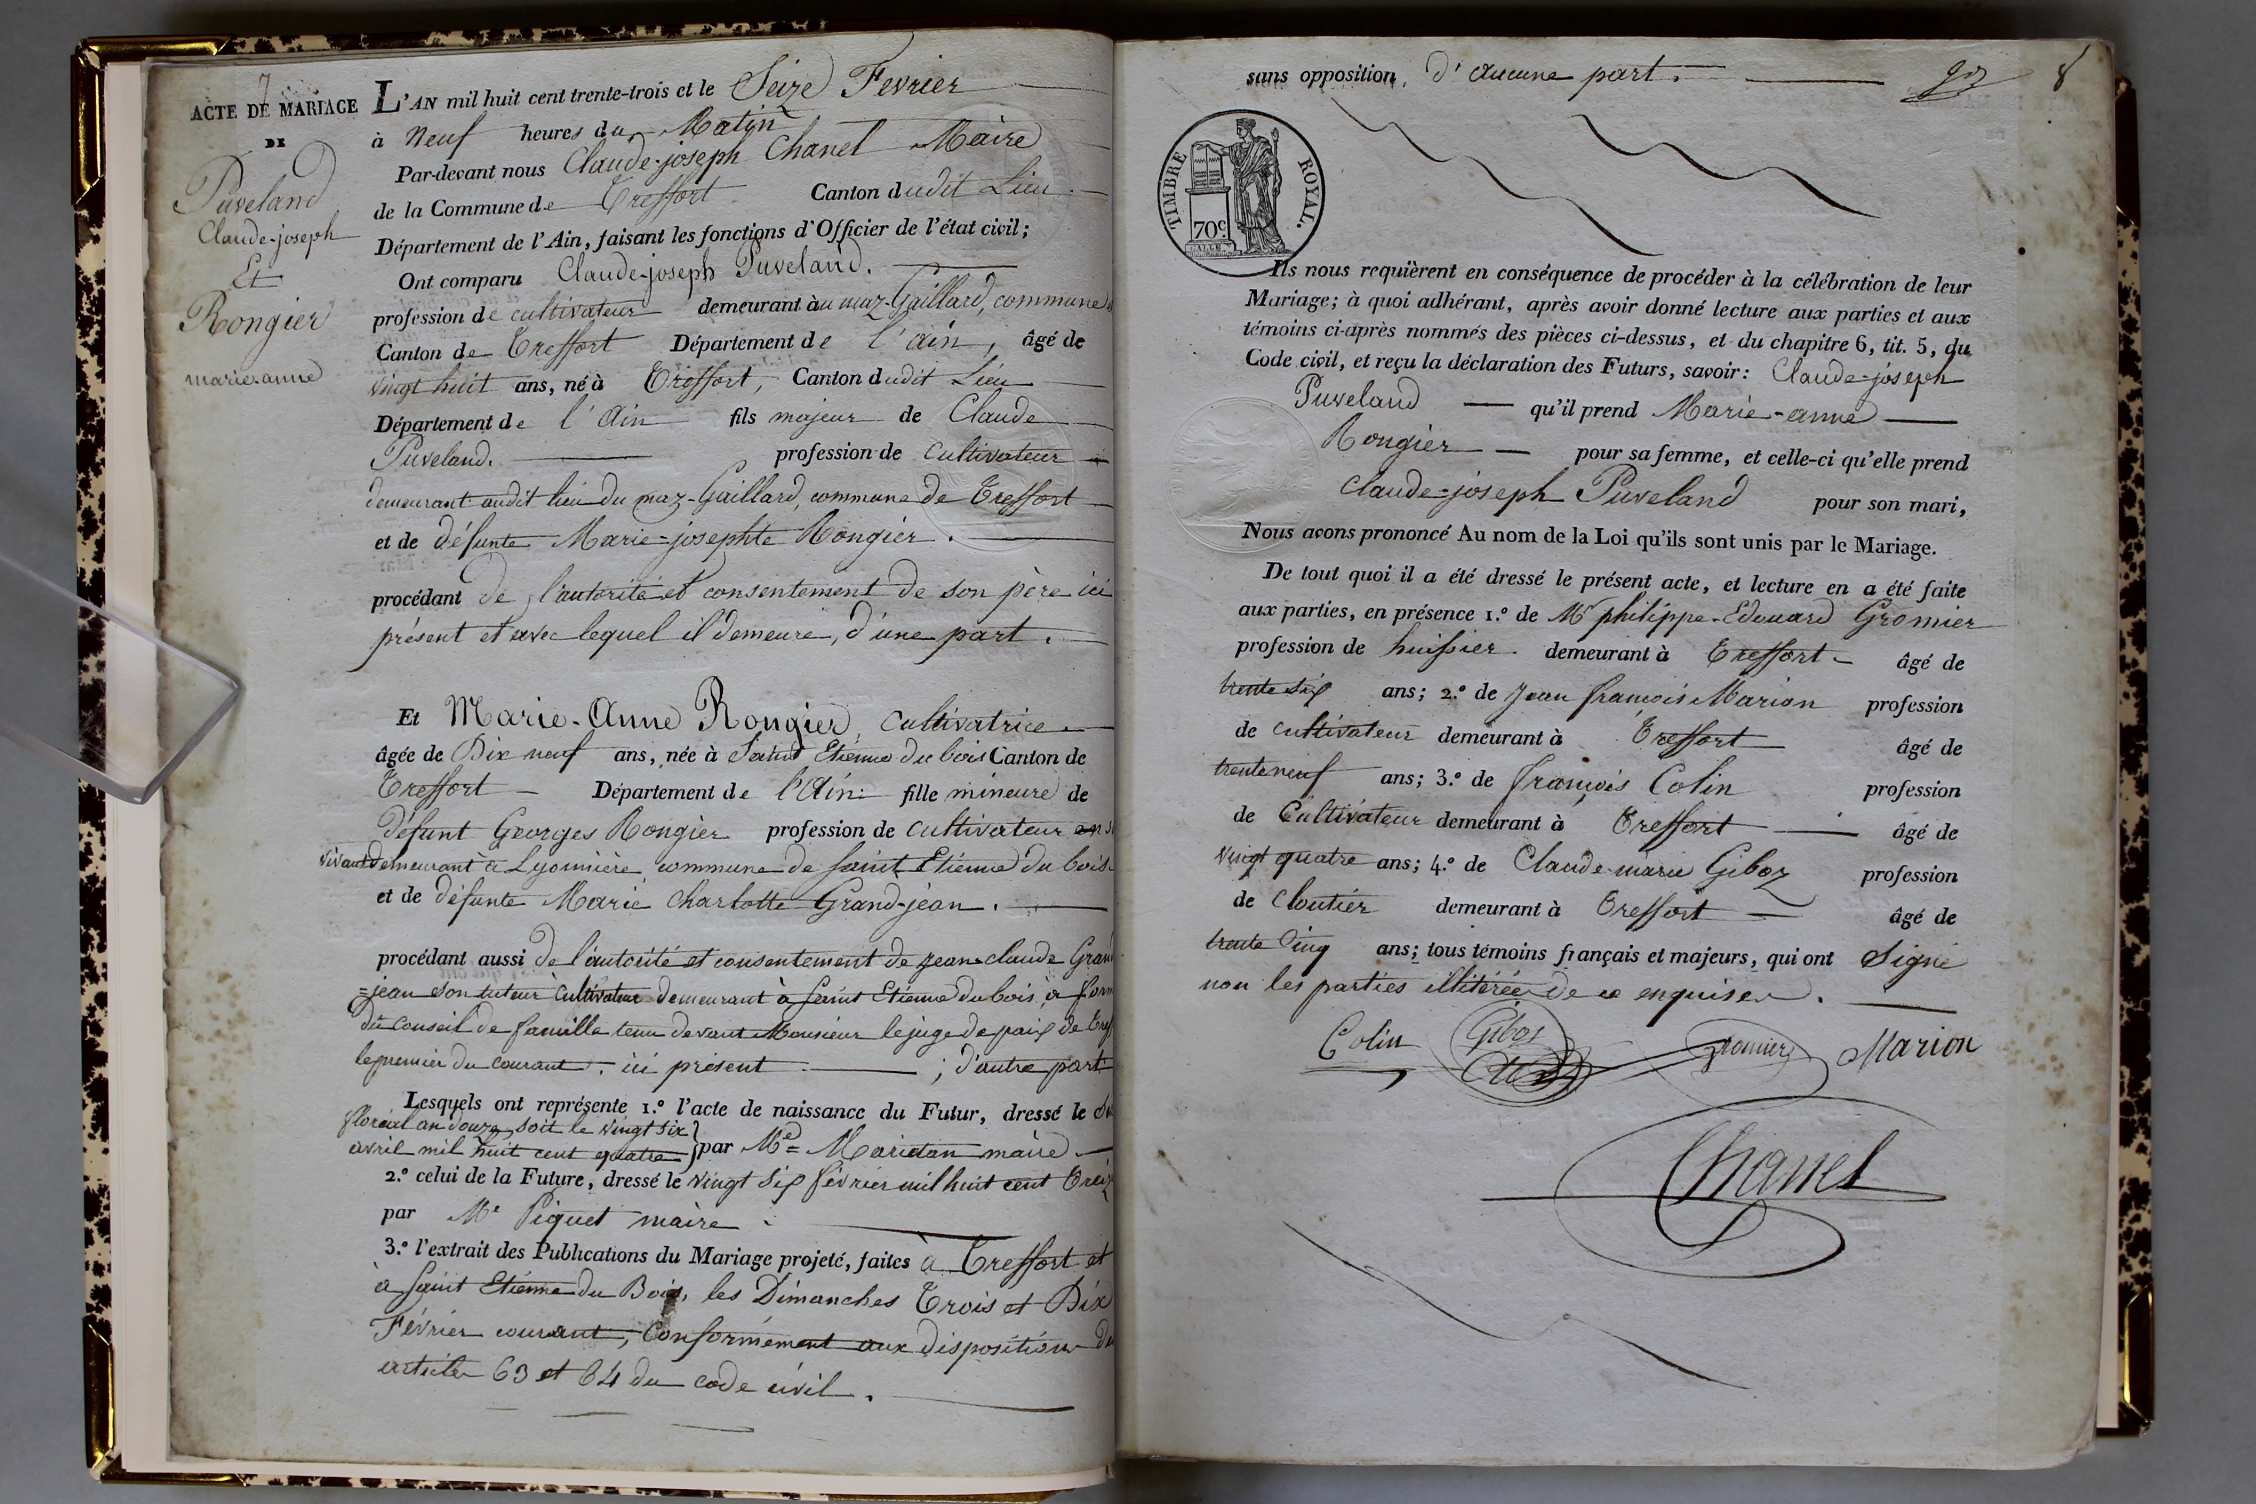 7
ACTE DE MARIAGE
DE
Puveland
Claude-joseph
Et
Rongier
marie-anne
L'AN mil huit cent trente-trois et le Seize Fevrier
à Neuf heures du Matin
Par-devant nous Claude-joseph Chanel Maire
de la Commune de Treffort Canton dudit Lieu
Département de l'Ain, faisant les fonctions d'Officier de l'état civil;
Ont comparu Claude-joseph Puveland.
profession de cultivateur demeurant au maz-Gaillard, commune
Canton de Treffort Département de l'ain, âgé de
vingt huit ans, né à Treffort, Canton dudit Lieu
Département de l'Ain fils majeur de Claude
Puveland. profession de Cultivateur
demeurant audit lieu du maz-Gaillard, commune de Treffort
et de défunte Marie-josephte Rongier.
procédant de l'autorité et consentement de son père ici
présent et avec lequel il demeure, d'une part.
Et Marie-Anne Rongier Cultivatrice
âgée de Dix neuf ans, née à Saint Etienne du bois Canton de
Treffort Département de l'Ain fille mineure de
défunt Georges Rongier profession de cultivateur en s
vivant demeurant à Lyonnière commune de Saint Etienne du bois
et de défunte Marie Charlotte Grand-jean.
procédant aussi de l'autorité et consentement de jean-claude Grand
=jean son tuteur cultivateur demeurant à Saint Etienne du bois, à form
du Conseil de famille tenu devant Monsieur le juge de paix de Tref
le premier du courant, ici présent ; d'autre part
Lesquels ont représente 1.º l'acte de naissance du Futur, dressé le Six
floréal an douze, soit le vingt six
avril mil huit cent quatre } par Me Maridan maire
2.º celui de la Future, dressé le vingt six février mil huit cent Treiz
par Mr Piquet maire
3.º l'extrait des Publications du Mariage projeté, faites à Treffort et
à Saint Etienne du Bois, les Dimanches Trois et Dix
Février courant, Conformément aux dispositions de
articles 63 et 64 du code civil.
sans opposition, d'aucune part. 8
TIMBRE ROYAL.
70 c.
Ils nous requièrent en conséquence de procéder à la célébration de leur
Mariage; à quoi adhérant, après avoir donné lecture aux parties et aux
témoins ci-après nommés des pièces ci-dessus, et du chapitre 6, tit. 5, du
Code civil, et reçu la déclaration des Futurs, savoir: Claude-joseph
Puveland qu'il prend Marie-anne
Rongier pour sa femme, et celle-ci qu'elle prend
Claude-joseph Puveland pour son mari,
Nous avons prononcé Au nom de la Loi qu'ils sont unis par le Mariage.
De tout quoi il a été dressé le présent acte, et lecture en a été faite
aux parties, en présence 1.º de Mr philippe-Edouard Gromier
profession de huissier demeurant à Treffort âgé de
trente six ans; 2.º de Jean françois Marion profession
de Cultivateur demeurant à Treffort âgé de
trente neuf ans; 3.º de françois Colin profession
de Cultivateur demeurant à Treffort âgé de
vingt quatre ans; 4.º de Claude-marie Giboz profession
de Cloutier demeurant à Treffort âgé de
trente Cinq ans; tous témoins français et majeurs, qui ont Signé
non les parties illitérées de ce enquises.
Colin Gibos Gromier Marion
Chanel